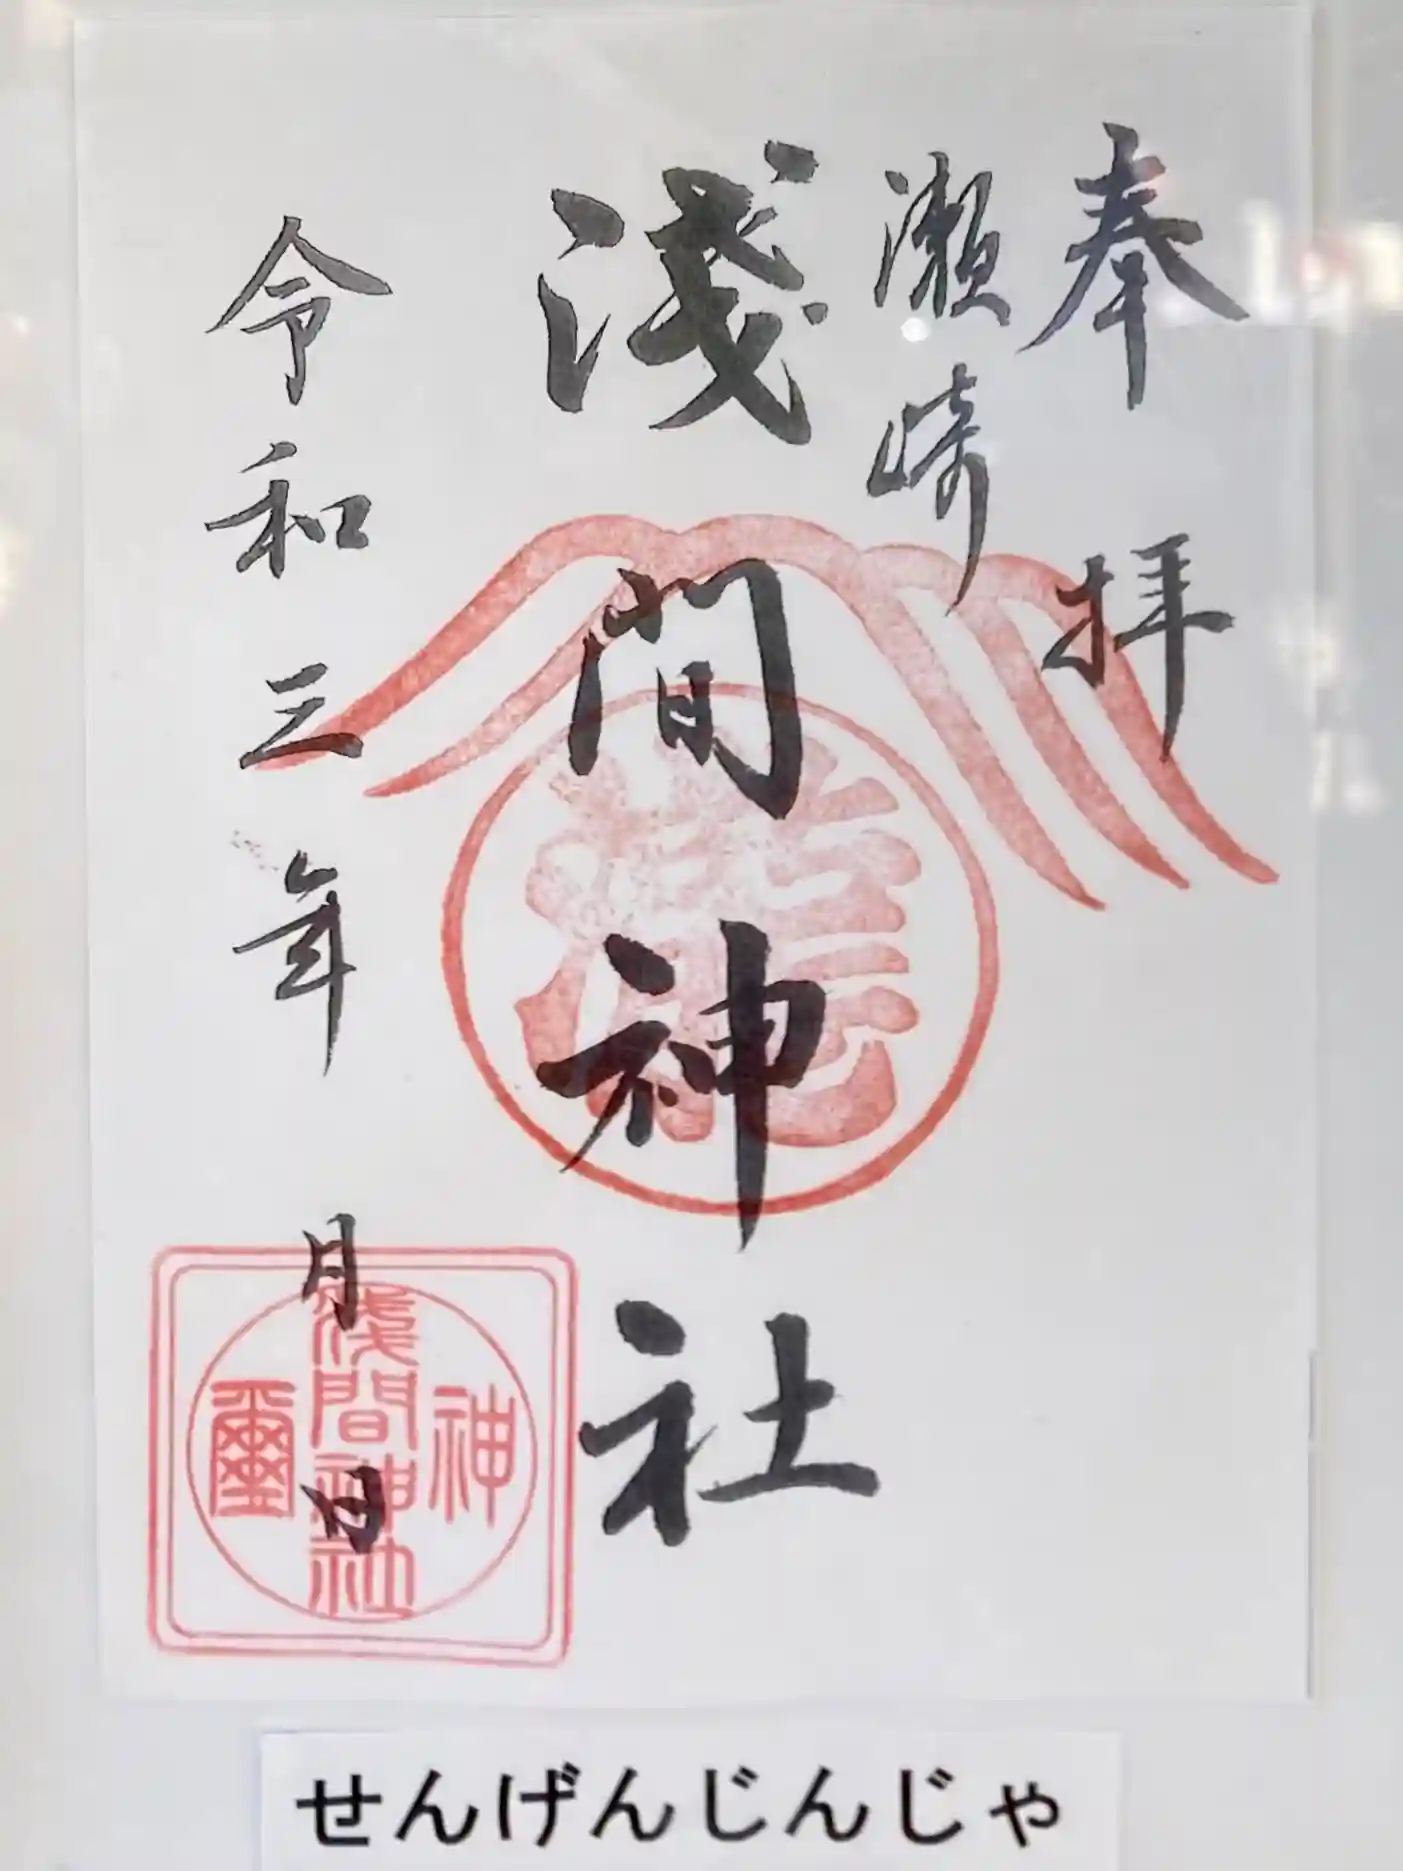 奉拝
瀬崎
淺間神社
令和三年 月 日
神
淺間神社
璽
せんげんじんじゃ